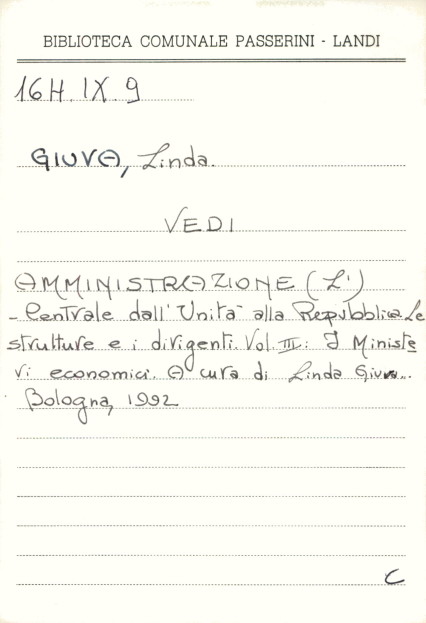 BIBLIOTECA COMUNALE PASSERINI - LANDI
16H. IX. 9
GIUVA, Linda.
VEDI
AMMINISTRAZIONE (L')
- Centrale dall'Unità alla Repubblica. Le
strutture e i dirigenti. Vol. III: I Ministe
ri economici. A cura di Linda Giuva..
Bologna, 1992
C